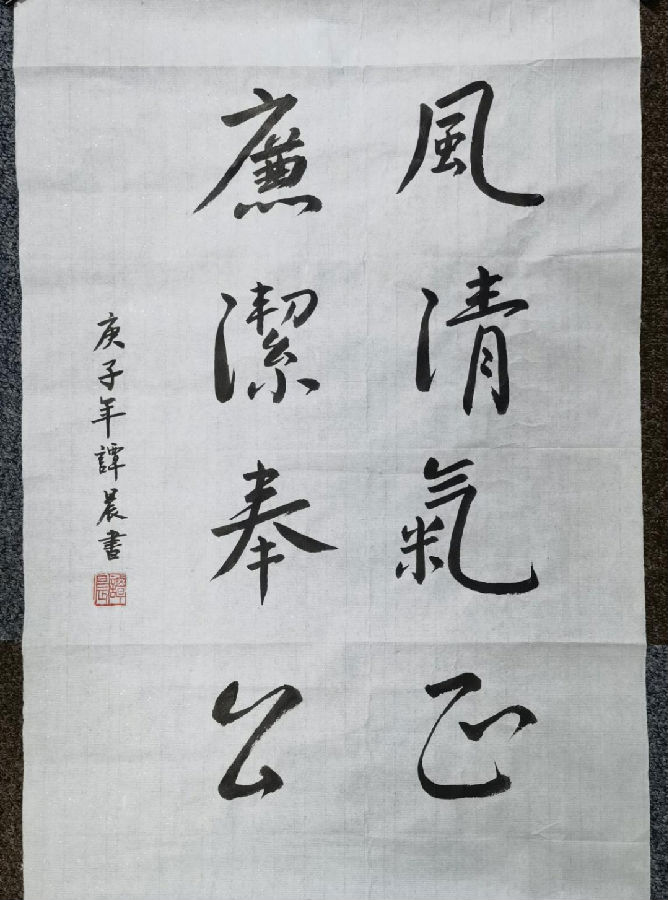 風清氣正
廉潔奉公
庚子年譚晨書
譚晨